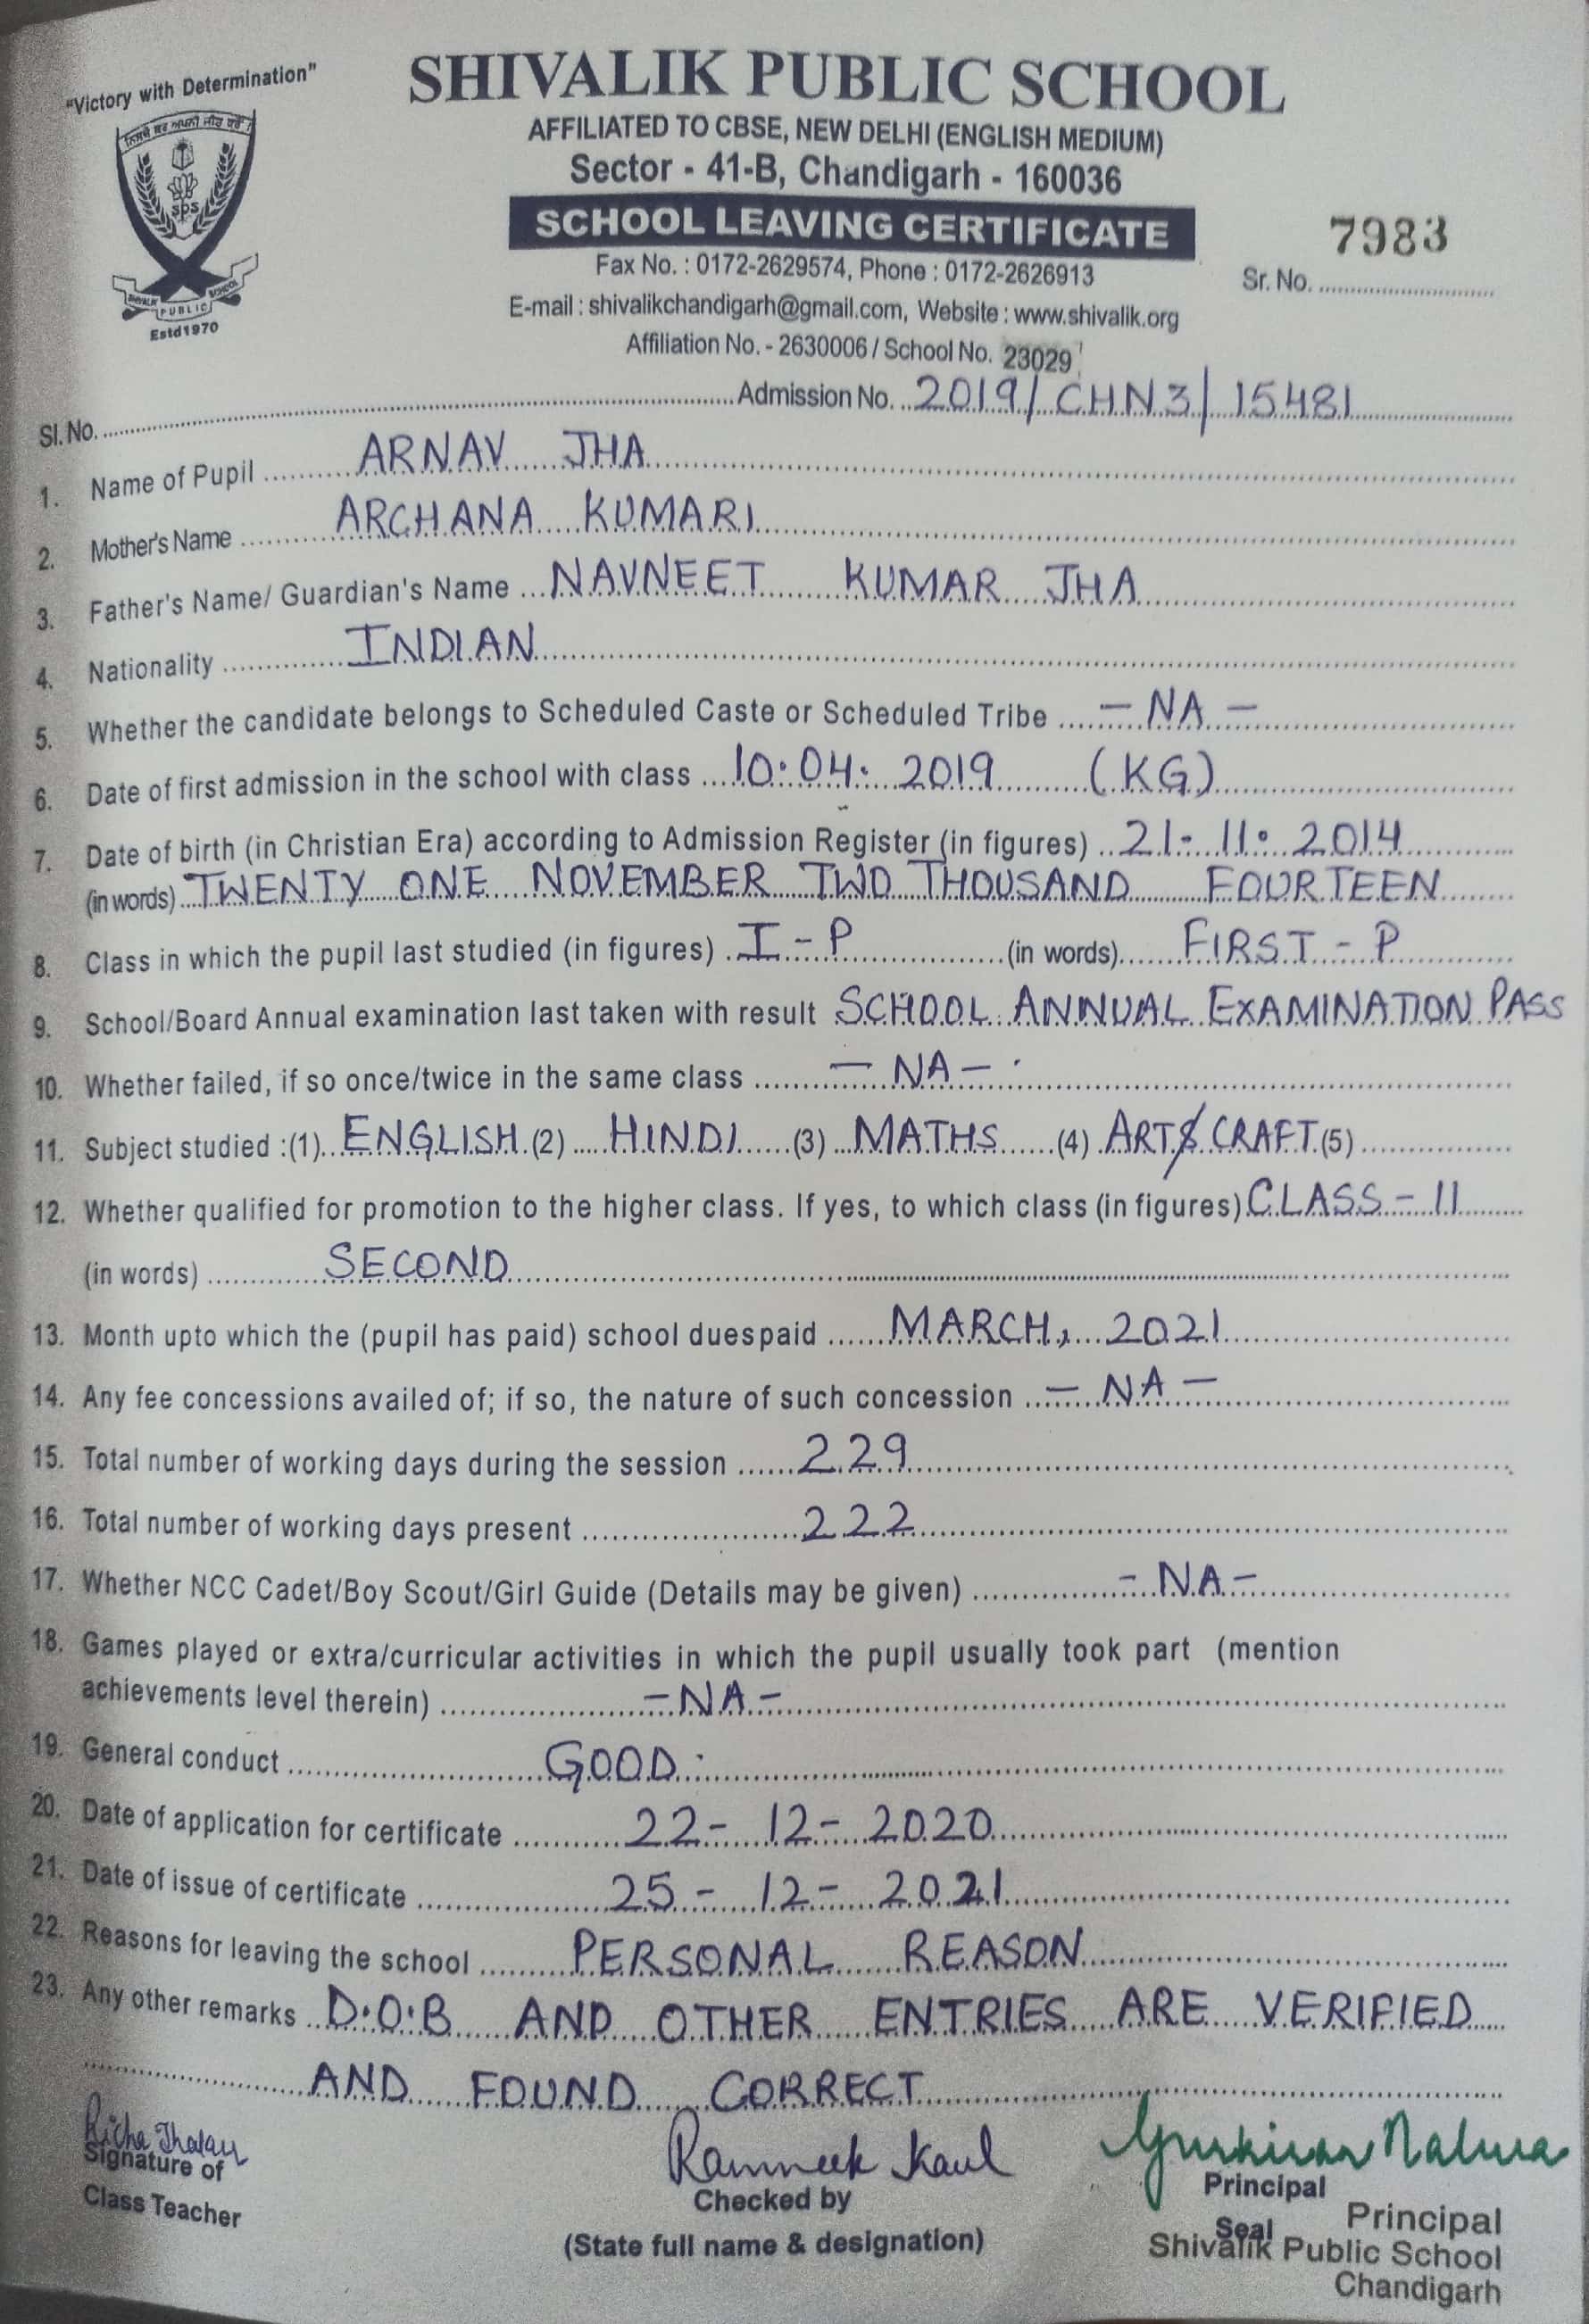 "Victory with Determination"
SHIVALIK PUBLIC SCHOOL
AFFILIATED TO CBSE, NEW DELHI (ENGLISH MEDIUM)
Sector - 41-B, Chandigarh - 160036
SCHOOL LEAVING CERTIFICATE
7983
Fax No. : 0172-2629574, Phone : 0172-2626913
Sr. No.
E-mail : shivalikchandigarh@gmail.com, Website : www.shivalik.org
SPS
SHIVALIK PUBLIC SCHOOL
Estd 1970
Affiliation No. - 2630006 / School No. 23029
Sl. No. Admission No. 2019/CHN3/15481
1. Name of Pupil ARNAV JHA
2. Mother's Name ARCHANA KUMARI
3. Father's Name/ Guardian's Name NAVNEET KUMAR JHA
4. Nationality INDIAN
5. Whether the candidate belongs to Scheduled Caste or Scheduled Tribe - NA -
6. Date of first admission in the school with class 10.04. 2019 (KG)
7. Date of birth (in Christian Era) according to Admission Register (in figures) 21- 11. 2014
(in words) TWENTY ONE NOVEMBER TWO THOUSAND FOURTEEN
8. Class in which the pupil last studied (in figures) I - P (in words) FIRST - P
9. School/Board Annual examination last taken with result SCHOOL ANNUAL EXAMINATION PASS
10. Whether failed, if so once/twice in the same class - NA -
11. Subject studied :(1) ENGLISH (2) HINDI (3) MATHS (4) ART & CRAFT (5)
12. Whether qualified for promotion to the higher class. If yes, to which class (in figures) CLASS - II
(in words) SECOND
13. Month upto which the (pupil has paid) school duespaid MARCH, 2021
14. Any fee concessions availed of; if so, the nature of such concession - NA -
15. Total number of working days during the session 229
16. Total number of working days present 222
17. Whether NCC Cadet/Boy Scout/Girl Guide (Details may be given) - NA -
18. Games played or extra/curricular activities in which the pupil usually took part (mention
achievements level therein) - NA -
19. General conduct GOOD
20. Date of application for certificate 22- 12- 2020
21. Date of issue of certificate 25- 12- 2021
22. Reasons for leaving the school PERSONAL REASON
23. Any other remarks D.O.B AND OTHER ENTRIES ARE VERIFIED
AND FOUND CORRECT
Ramneek Kaul
Signature of
Class Teacher
Checked by
(State full name & designation)
Principal
Seal
Principal
Shivalik Public School
Chandigarh